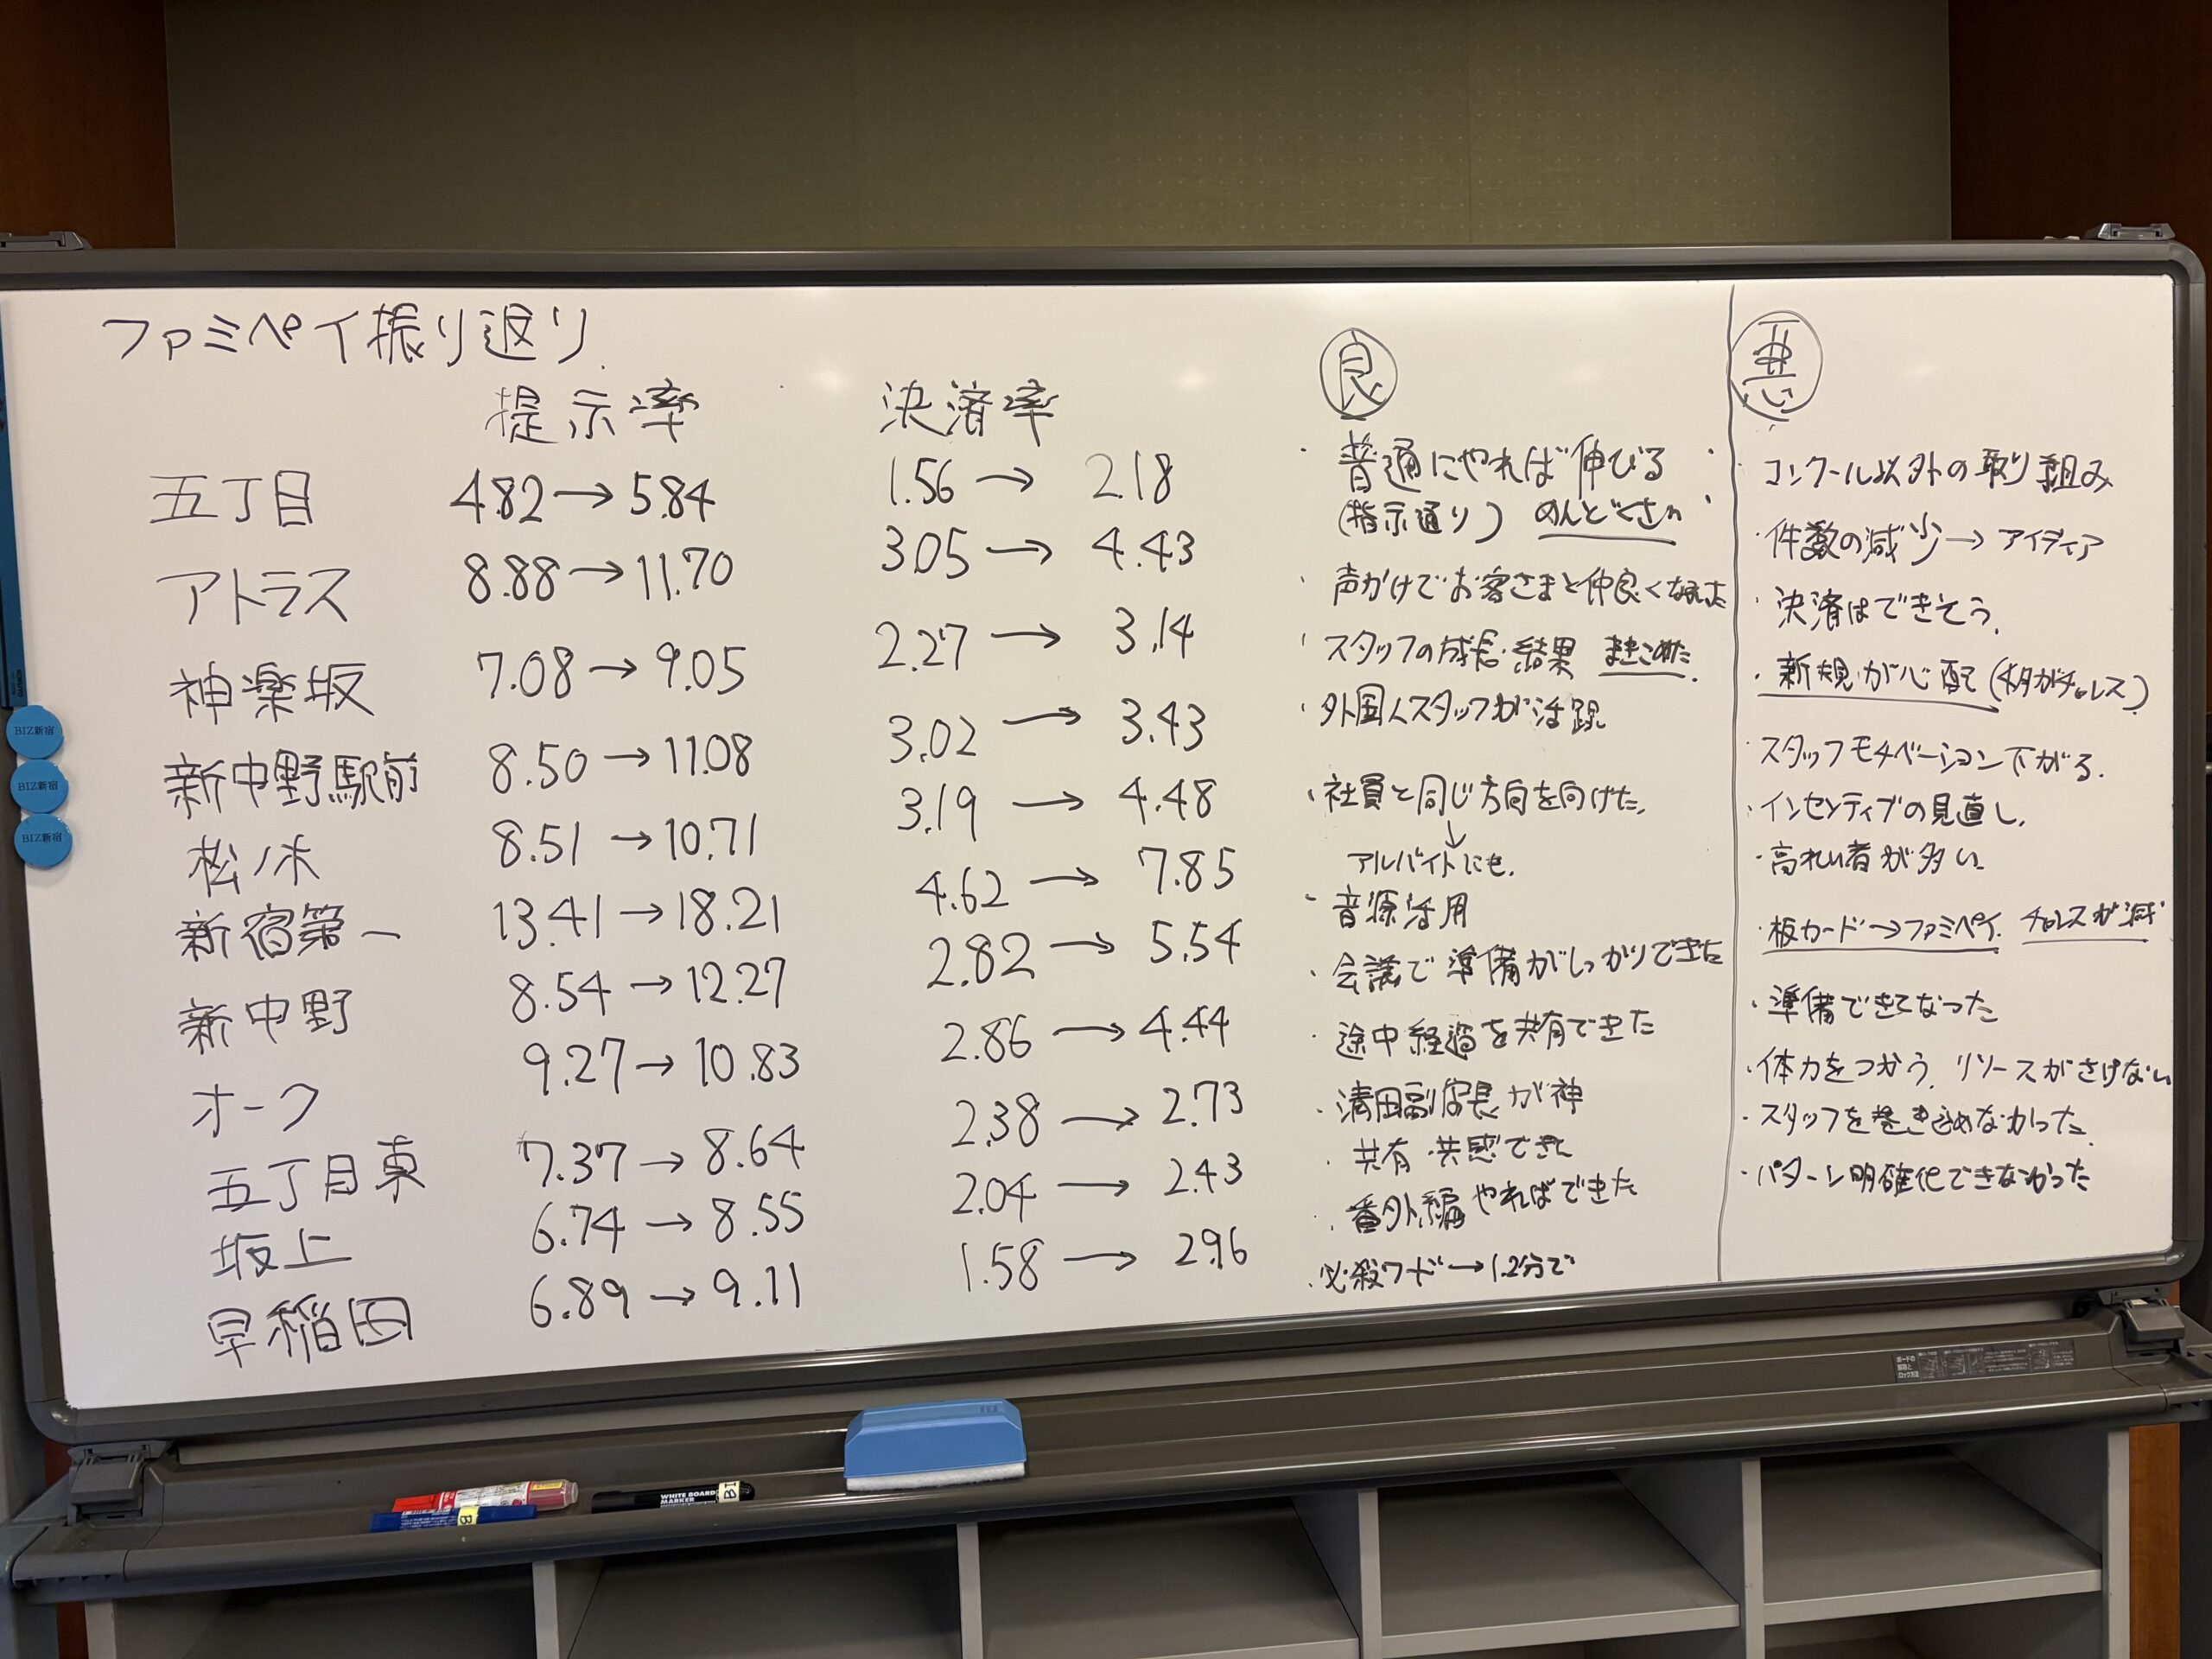 ファミペイ振り返り
提示率 決済率
五丁目 4.82→5.84 1.56→2.18
アトラス 8.88→11.70 3.05→4.43
神楽坂 7.08→9.05 2.27→3.14
新中野駅前 8.50→11.08 3.02→3.43
松ノ木 8.51→10.71 3.19→4.48
新宿第一 13.41→18.21 4.62→7.85
新中野 8.54→12.27 2.82→5.54
オーク 9.27→10.83 2.86→4.44
五丁目東 7.37→8.64 2.38→2.73
坂上 6.74→8.55 2.04→2.43
早稲田 6.89→9.11 1.58→2.96
良
・普通にやれば伸びる
(指示通り) めんどくさい
・声かけでお客さまと仲良くなれた
・スタッフの成長・結果 まきこめた
・外国人スタッフが活躍
・社員と同じ方向を向けた。
↓
アルバイトにも。
・音源活用
・会議で準備がしっかりできた
・途中経過を共有できた
・清田副店長が神
・共有・共感できた
・番外編やればできた
・必殺ワード→1.2分で
悪
・コンクール以外の取り組み
・件数の減少→アイディア
・決済はできそう。
・新規が心配
・スタッフモチベーション下がる。
・インセンティブの見直し。
・高れい者が多い
・板カード→ファミペイ。 チョレスが減
・準備できてなった
・体力をつかう。リソースがさけない
・スタッフを巻き込めなかった。
・パターン明確化できなかった
BIZ新宿
BIZ新宿
BIZ新宿
WHITE BOARD
MARKER